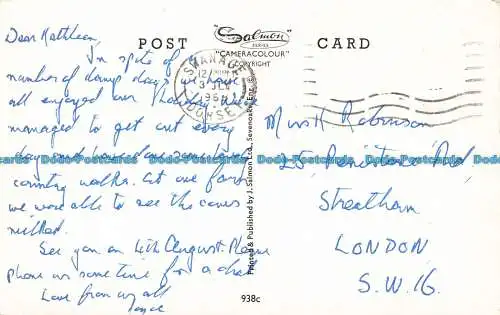 POST CARD
Salmon
SERIES
"CAMERACOLOUR"
COPYRIGHT
SWANAGE
3 JLY
DORSET
Dear Kathleen,
In spite of
number of damp days we have
all enjoyed our holiday. We've
managed to get out every
day and have done some
country walks. At one farm
we were able to see the cows
milked.
See you on 4th August. Please
phone us some time for a chat
Love from us all
Joyce
Printed & Published by J. Salmon Ltd., Sevenoaks
Miss K Robinson
25
Streatham
LONDON
S.W.16.
938c